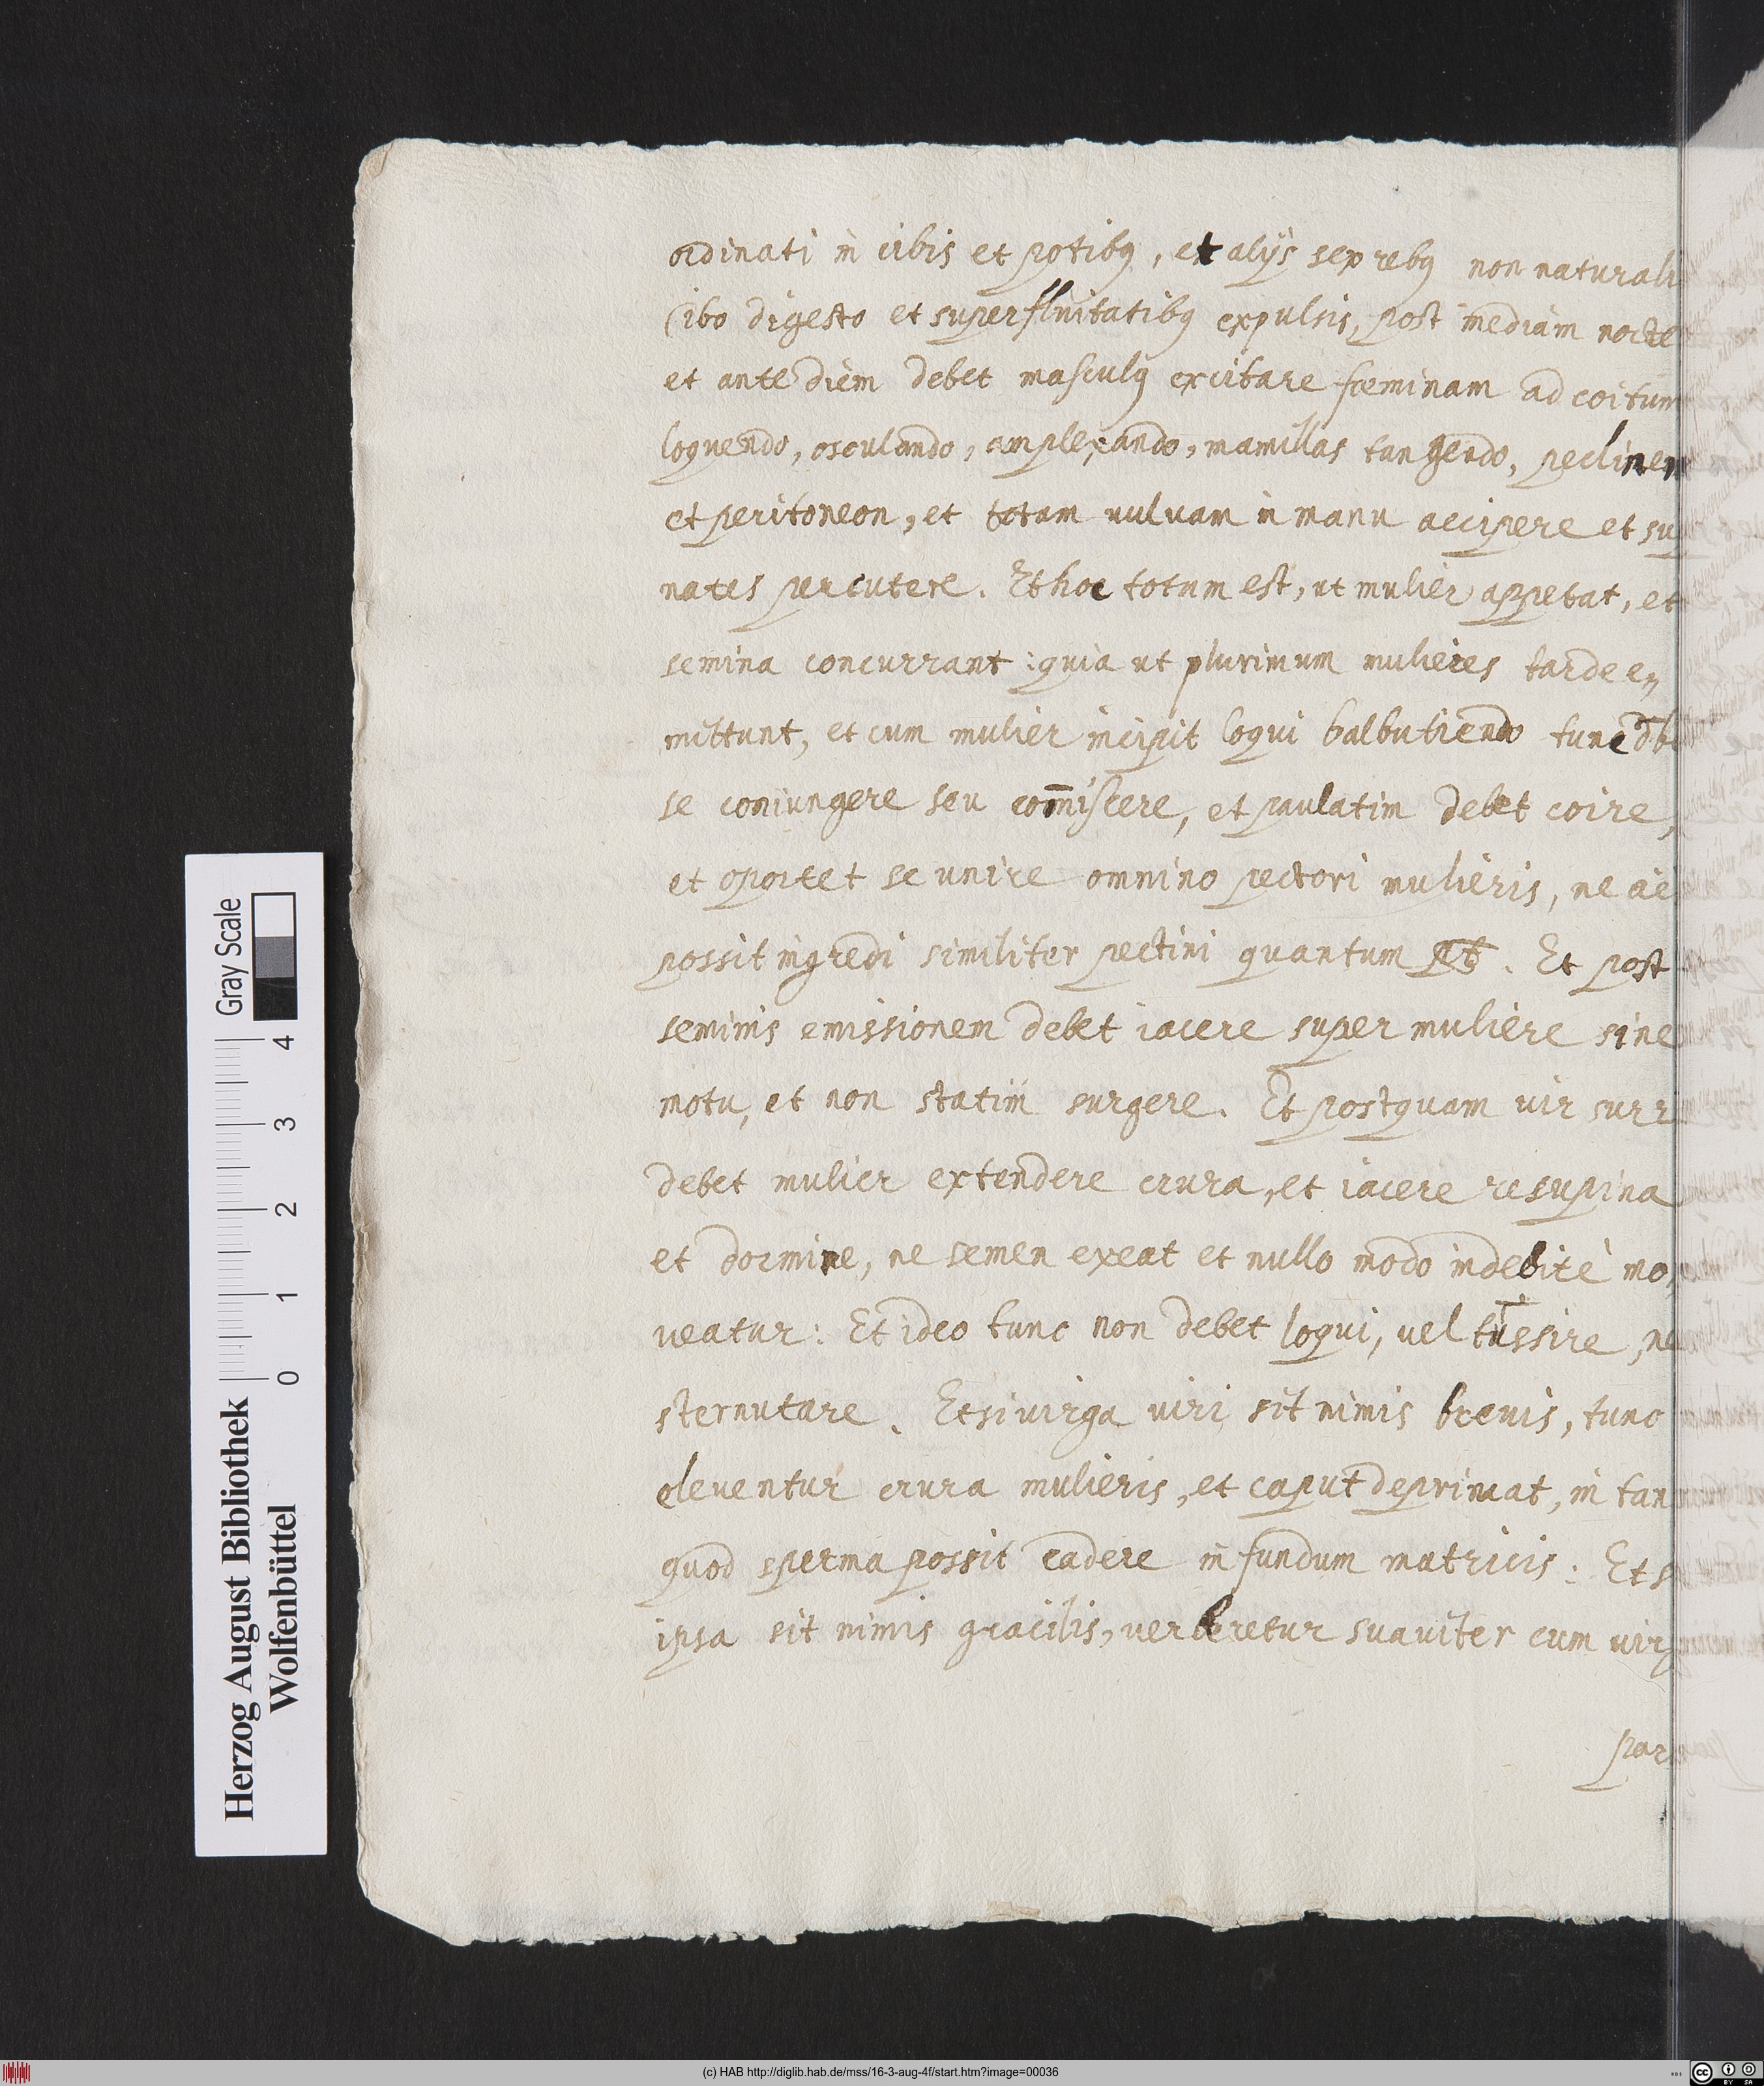 ordinati in cibis et potibꝰ, et alijs sex rebꝰ non naturali
Cibo digesto et superfluitatibꝰ expulsis, post mediam nocte
et ante diem debet masculꝰ excitare fœminam ad coitum
loquendo, osculando, amplexando, mamillas tangendo, pectinem
et peritoneon, et totam uuluam in manu accipere et sup
nates percutere. Et hoc totum est, ut mulier appetat, et
semina concurrant: quia ut plurimum mulieres tarde e„
mittunt, et cum mulier incipit loqui balbutiendo tunc
se coniungere seu com̄iscere, et paulatim debet coire,
et oportet se unire omnino pectori mulieris, ne aë
possit ingredi similiter pectini quantum . Et post
seminis emissionem debet iacere super muliere sine
motu, et non statim surgere. Et postquam vir surr
debet mulier extendere crura, et iacere resupina
et dormire, ne semen exeat et nullo modo indebitè mo„
ueatur: Et ideo tunc non debet loqui, vel tussire, ne
sternutare. Et si virga viri sit nimis breuis, tunc
eleuentur crura mulieris, et caput deprimat, in tan
quod sperma possit cadere in fundum matricis: Et s
ipsa sit nimis gracilis, verberetur suauiter cum virg
par
Herzog August Bibliothek
Wolfenbüttel
0 1 2 3 4
Gray Scale
(c) HAB http://diglib.hab.de/mss/16-3-aug-4f/start.htm?image=00036
cc BY SA